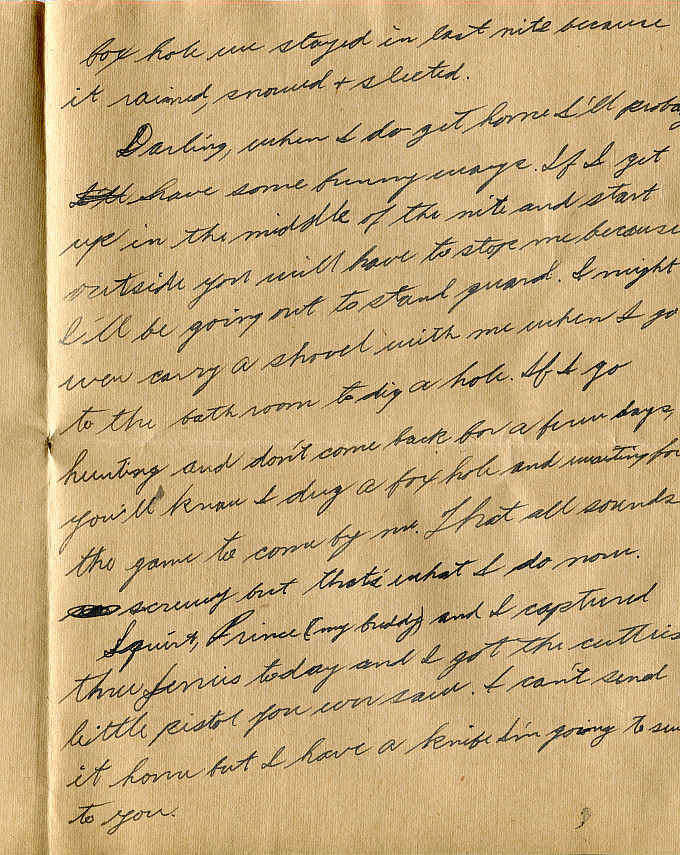 fox hole we stayed in last nite because
it rained, snowed + sleeted.
Darling, when I do get home I'll probay
I'll have some funny ways. If I get
up in the middle of the nite and start
outside you will have to stop me because
I'll be going out to stand guard. I might
even carry a shovel with me when I go
to the bathroom to dig a hole. If I go
hunting and don't come back for a few days,
you'll know I dug a fox hole and waiting for
the game to come by me. That all sounds
screwy but that's what I do now.
Squirt, Prince (my buddy) and I captured
three Jerries today and I got the cutties
little pistol you ever saw. I can't send
it home but I have a knife I'm going to
to you.